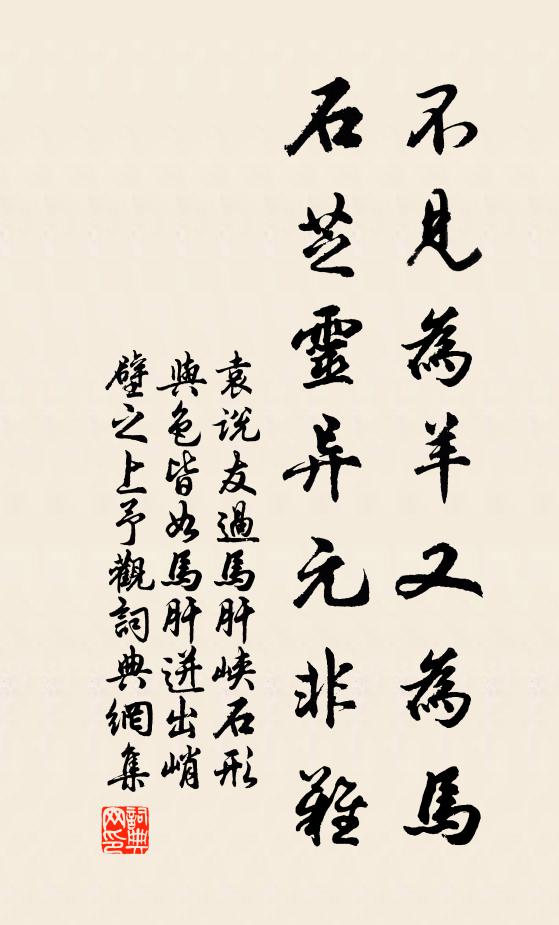 不見為羊又為馬
石芝靈异元非難
袁説友過馬肝峽石形
與色皆如馬肝迸出峭
壁之上予觀詞典網集
詞典網印